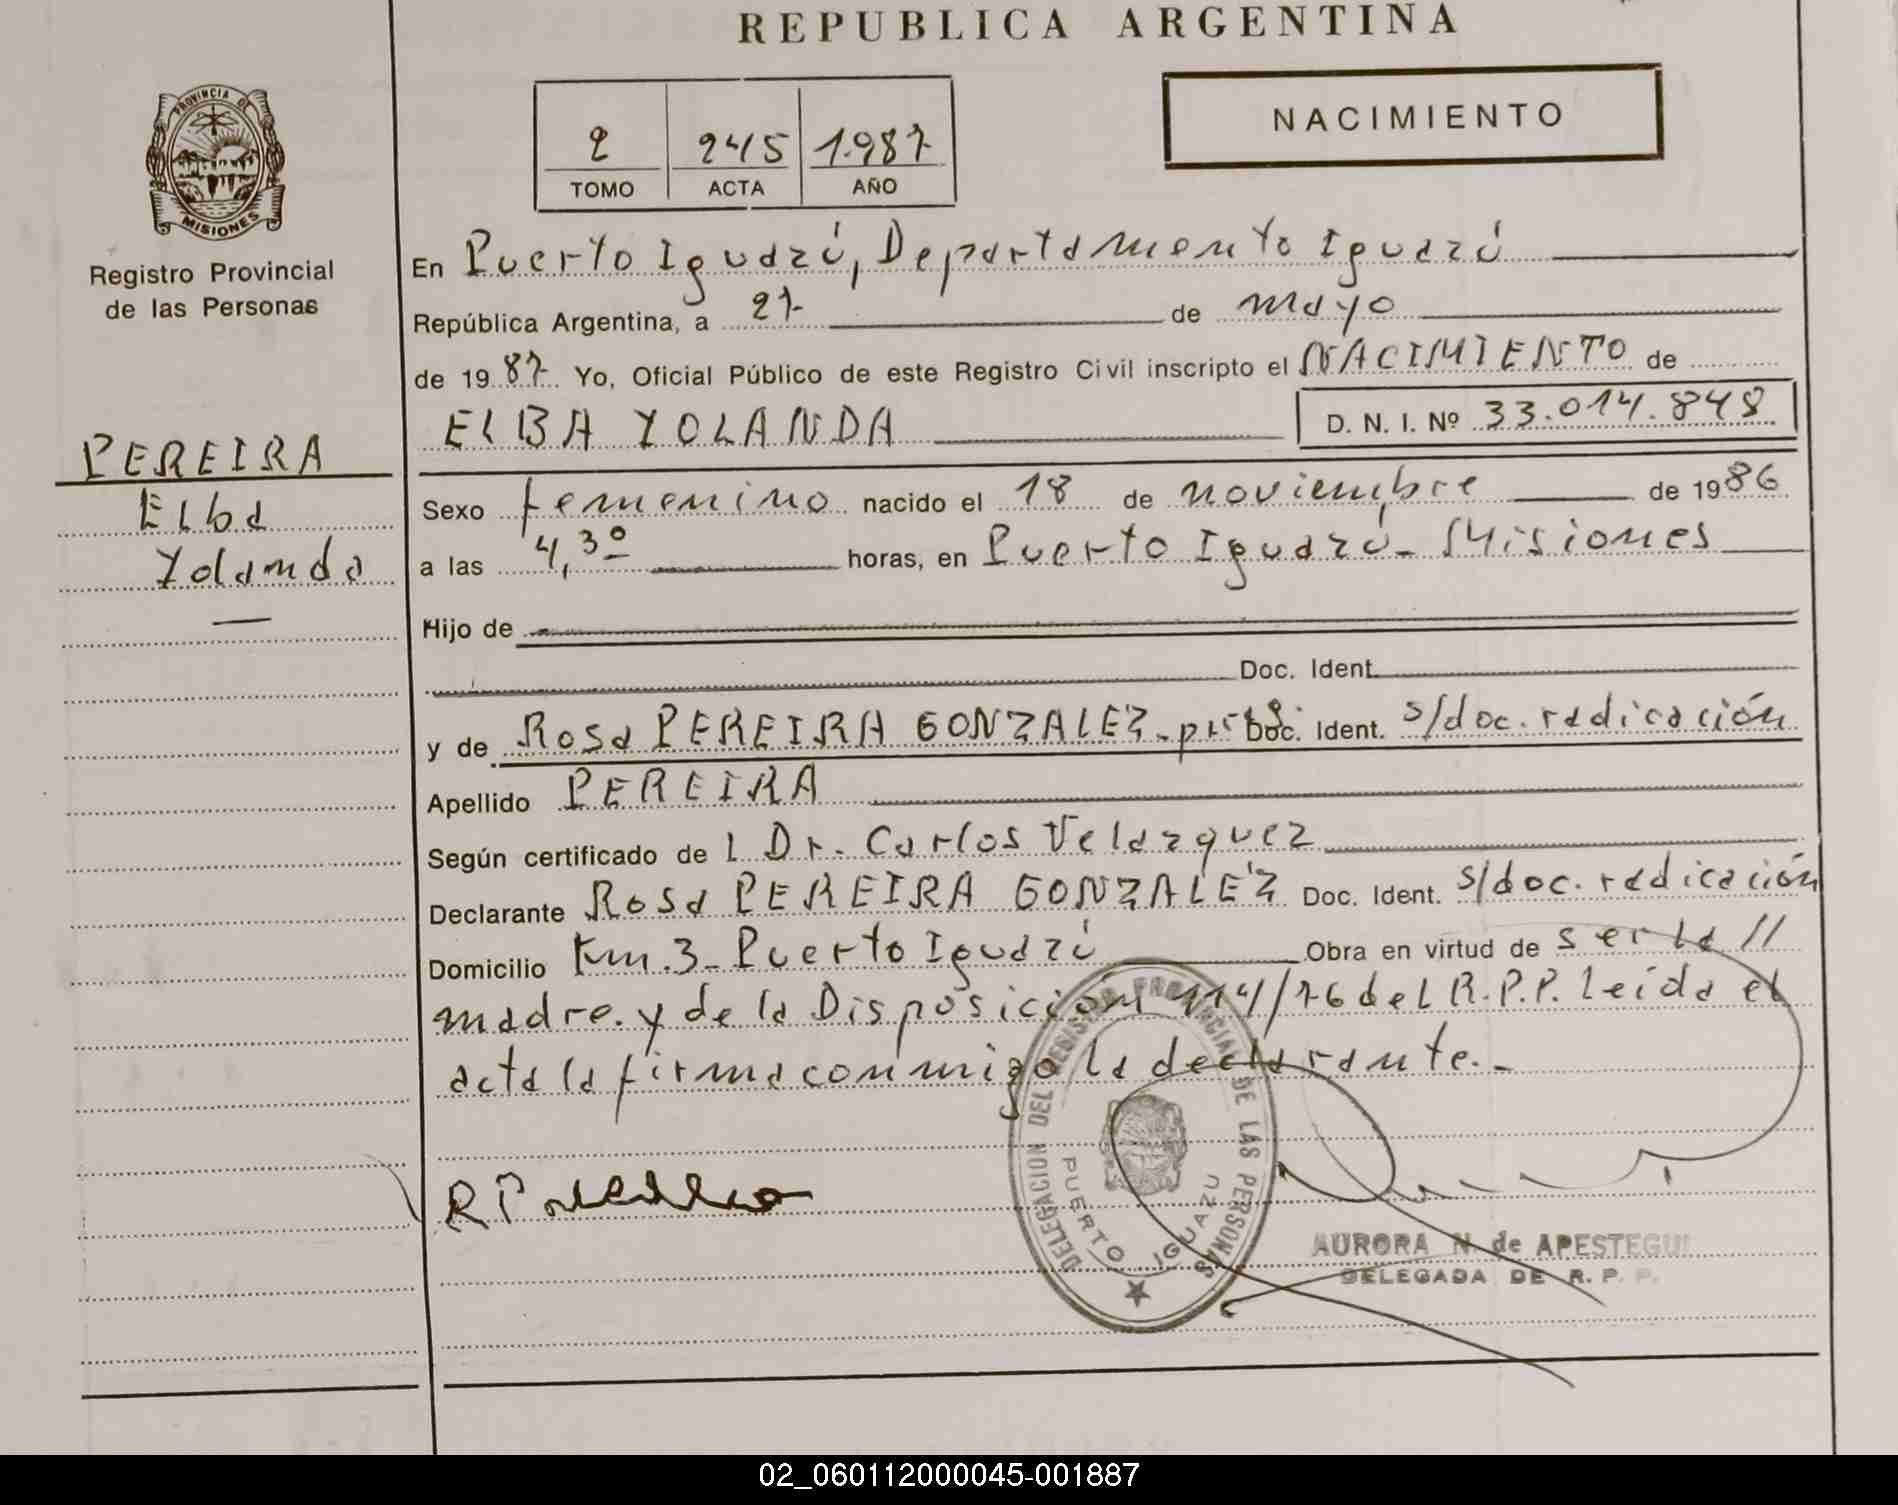 REPUBLICA ARGENTINA
NACIMIENTO
2 245 1987
TOMO ACTA AÑO
PROVINCIA DE
MISIONES
Registro Provincial
de las Personas
PEREIRA
Elba
Yolanda
En Puerto Iguazú, Departamento Iguazú
República Argentina, a 27 de mayo
de 1987 Yo, Oficial Público de este Registro Civil inscripto el NACIMIENTO de
ELBA YOLANDA D. N. I. Nº 33.014.848
Sexo femenino nacido el 18 de noviembre de 1986
a las 4,30 horas, en Puerto Iguazú - Misiones
Hijo de
Doc. Ident.
y de Rosa PEREIRA GONZALEZ - Doc. Ident. s/doc. radicación
Apellido PEREIRA
Según certificado de l Dr. Carlos Velazquez
Declarante Rosa PEREIRA GONZALEZ Doc. Ident. s/doc. radicación
Domicilio Km. 3 - Puerto Iguazú Obra en virtud de ser la //
madre. y de la Disposición 114/76 del R.P.P. Leída el
acta la firma conmigo la declarante. -
DELEGACION DEL REGISTRO PROVINCIAL DE LAS PERSONAS
PUERTO IGUAZU
AURORA N. de APESTEGUI
DELEGADA DE R. P. P.
02_060112000045-001887